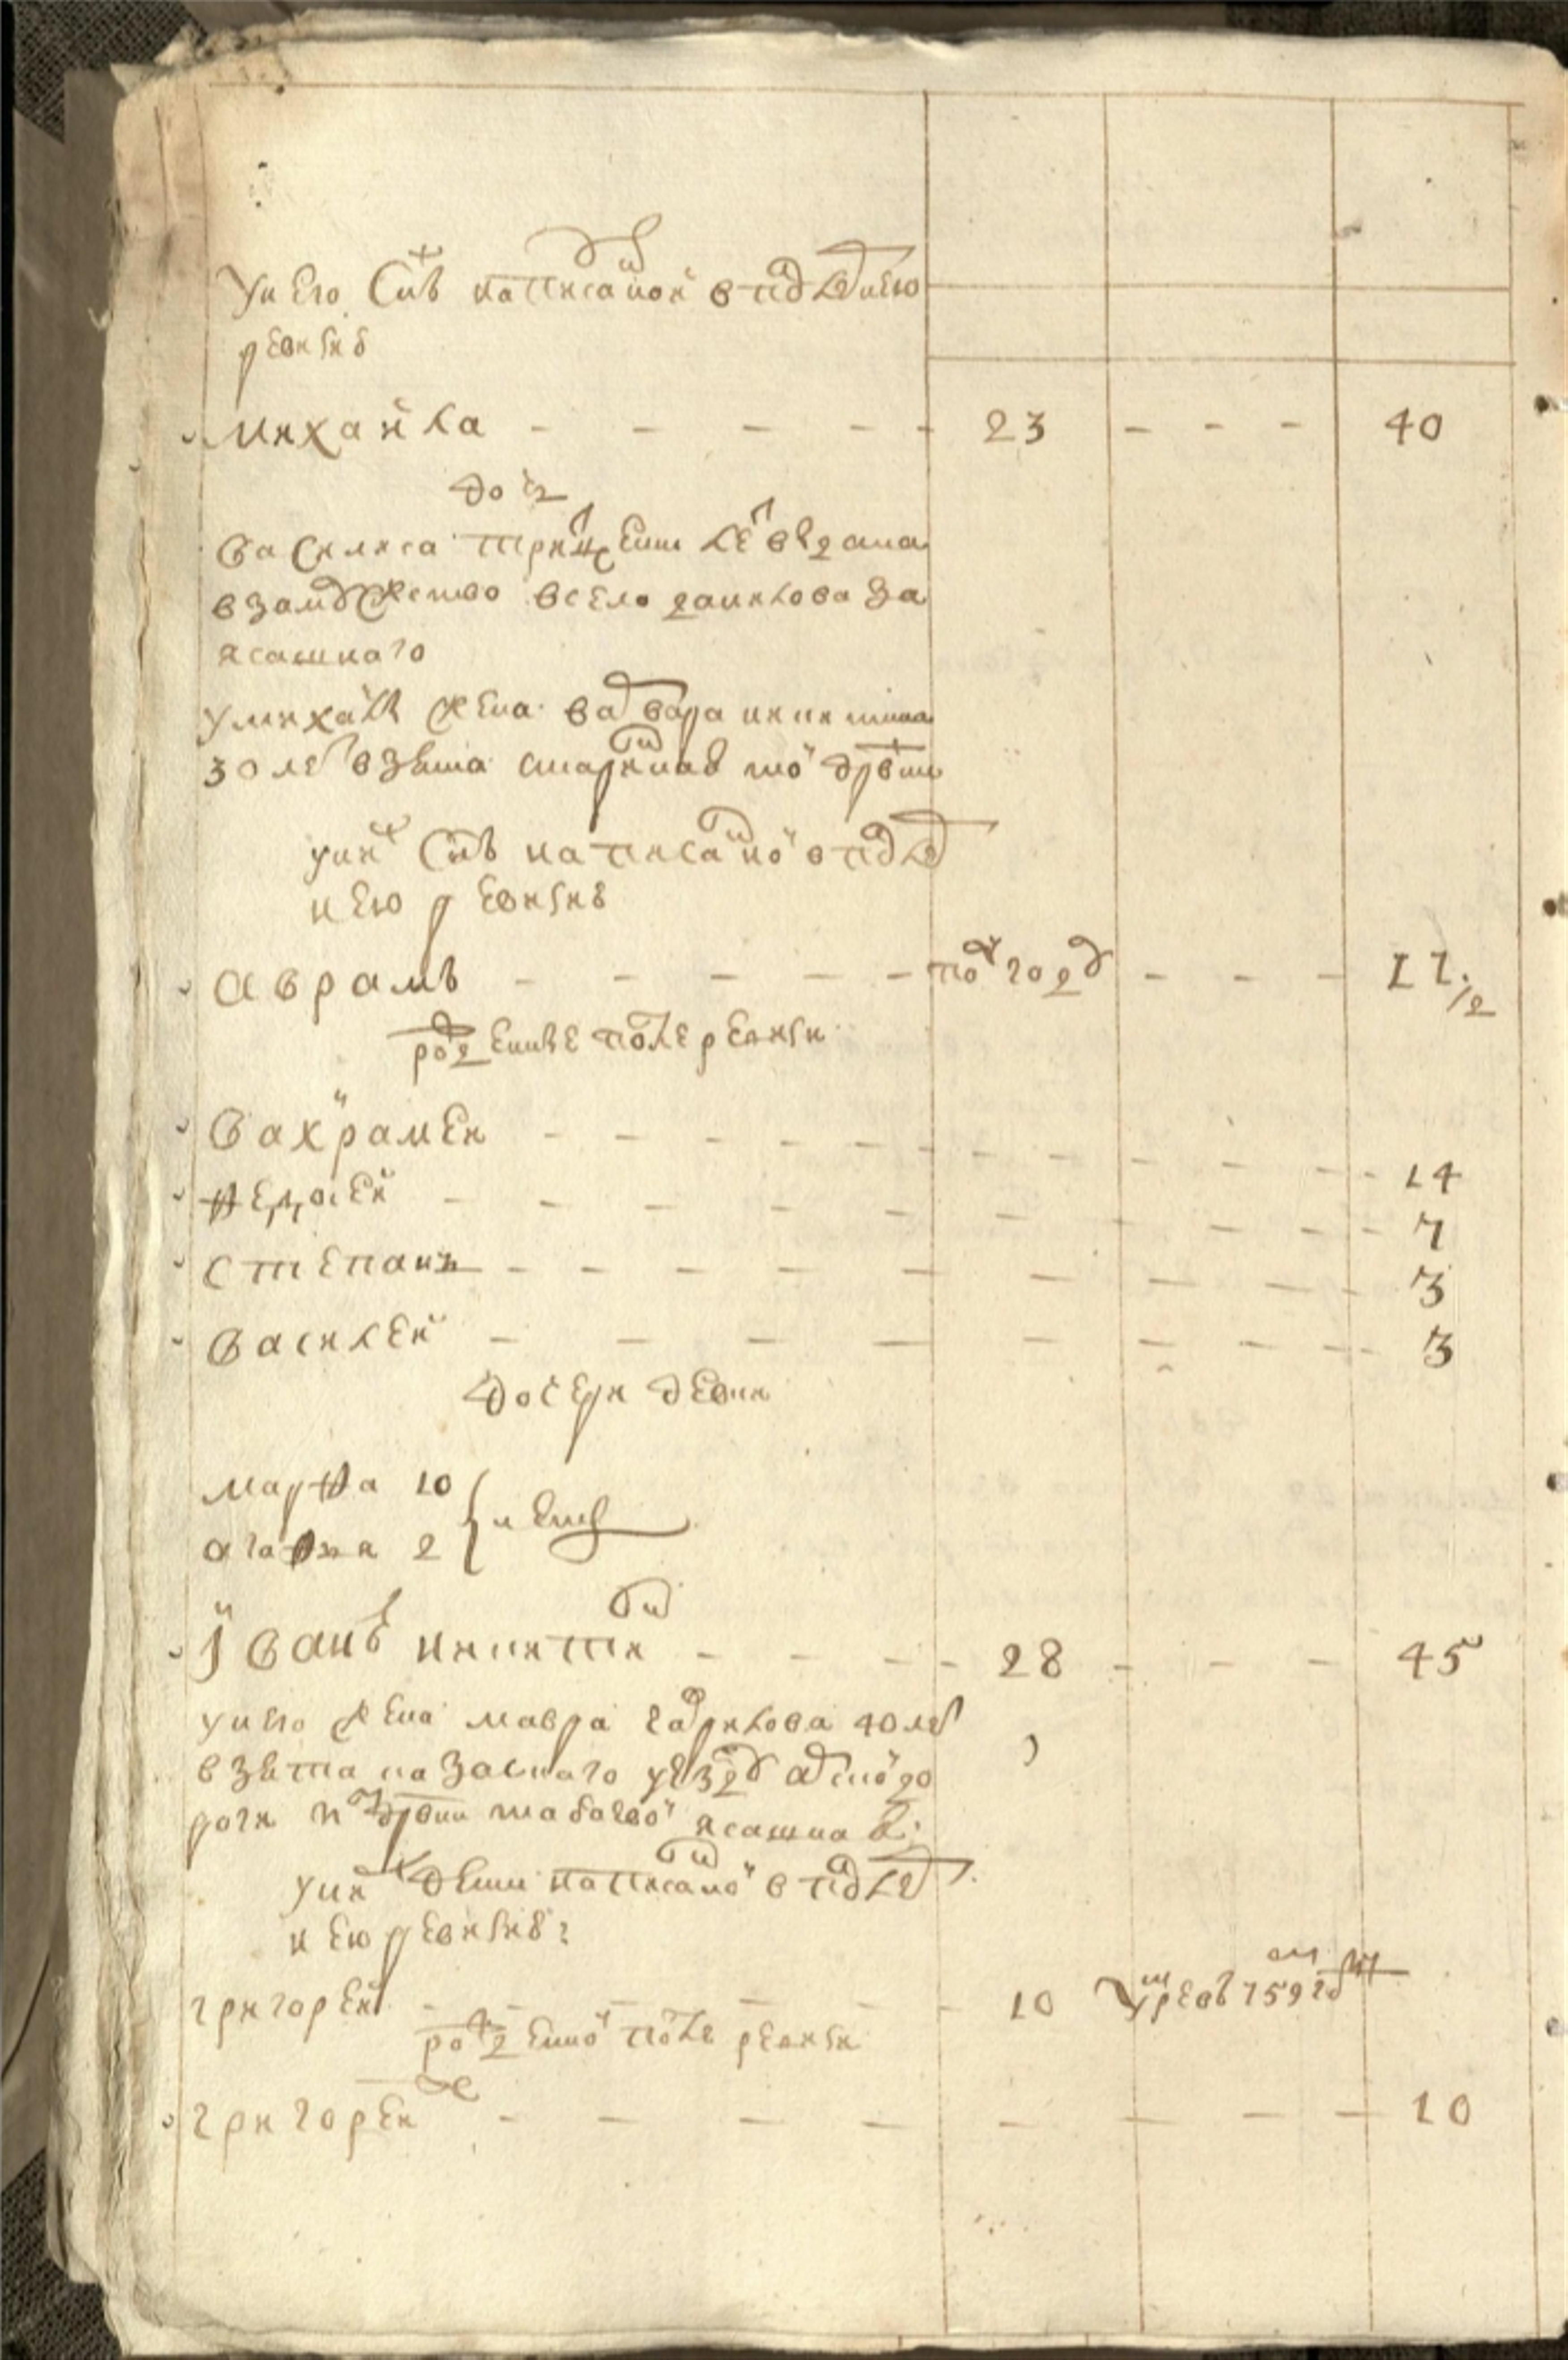 у него сынъ написаной в последнею
ревизию
михайла - - - - 23 - - - 40
дочь
василиса
взамужство в село данилова за
ясашнаго
у михайлы жена варвара никитина
30 летъ взята старинная той деревни
у них сынъ написаной в послед
нею ревизию
аврамъ - - - - - полгода - - - 17 1/2
рожденные после ревизии
вахрамей - - - - - - - - - - 14
федосей - - - - - - - - - 7
степанъ - - - - - - - - - 3
василей - - - - - - - - 3
дочери девки
марфа 10
агафья 2 } летъ
іванъ никитин - - - - 28 - - - 45
у него жена мавра гаврилова 40 летъ
взята казанского уезду
дороги из деревни ясашная
у них дети написаной в послед
нею ревизию:
григорей - - - - - 10 умре в 759 году
рожденной после ревизии
григорей ж - - - - - - - - 10